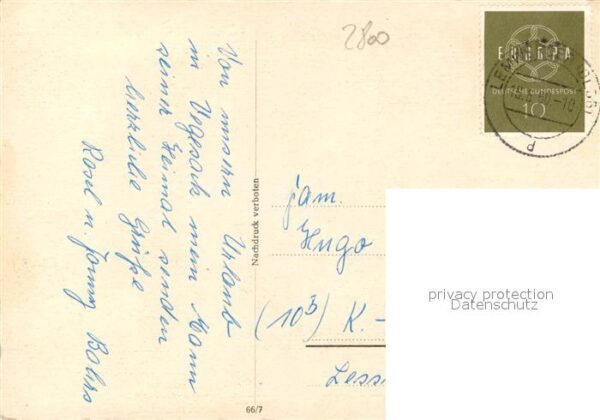 Von unsern Urlaub
in Vegesack mein Mann
seiner Heimat senden
herzliche Grüße
Rosel u.
2800
EUROPA
DEUTSCHE BUNDESPOST
10
Nachdruck verboten
fam.
Hugo
(10b) K.-
Less
66/7
privacy protection
Datenschutz